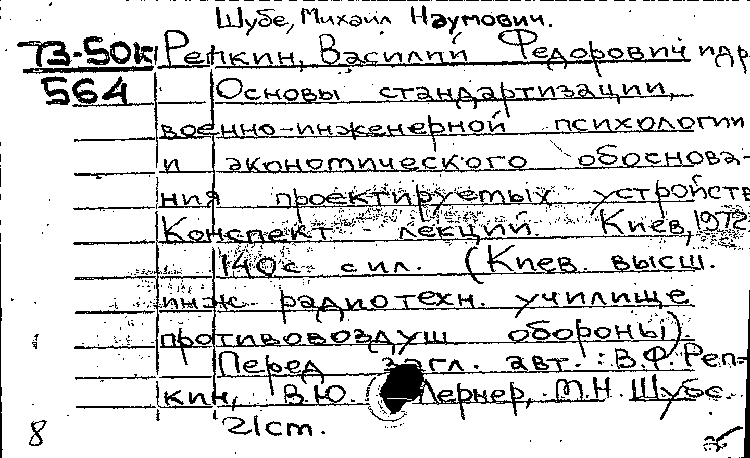 Шубе, Михаил Наумович.
73-50к Репкин, Василий Федорович и др
564 Основы стандартизации,
военно-инженерной психологии
и экономического обоснова-
ния проектируемых устройств
Конспект лекций. Киев, 1972
140с. с ил. (Киев. высш.
инж. радиотехн. училище
противовоздуш обороны).
Перед загл. авт.: В.Ф. Реп-
кин, В.Ю. Лернер, М.Н. Шубе.
8 21cm.